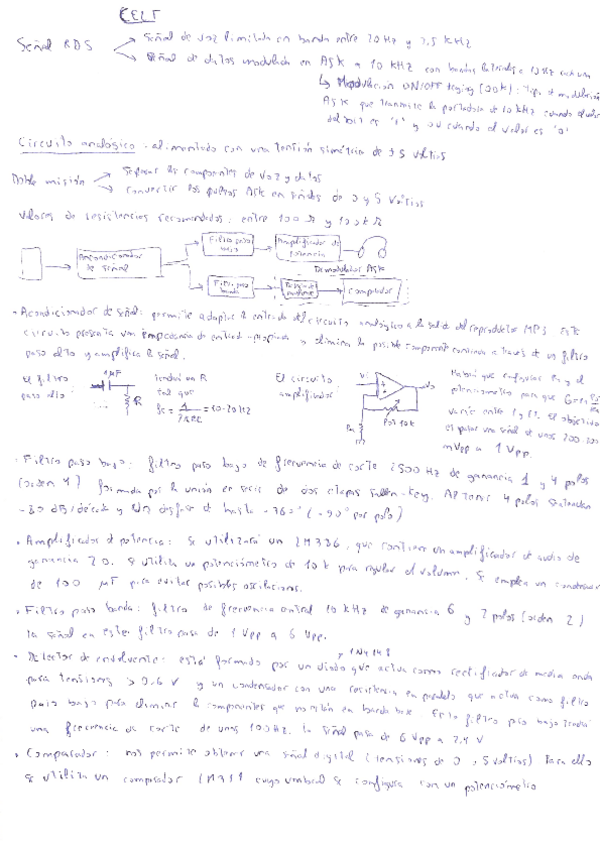 CELT
Señal RDS
Señal de voz limitada en banda entre 20Hz y 2,5 kHz
Señal de datos modulada en ASK a 10 kHz con banda
Modulación ON/OFF Keying (OOK): Tipo de modulación
ASK que transmite la portadora de 10 kHz cuando el valor
del bit es "1" y 0V cuando el valor es "0"
Circuito analógico alimentado con una tensión simétrica de 5 voltios
Doble misión
Separar las componentes de voz y datos
convertir los pulsos ASK en señales de 0 y 5 Voltios
Valores de resistencias recomendados: entre 100 Ω y 100 kΩ
Acondicionador de señal
Filtro paso bajo
Amplificador de potencia
Demodulador ASK
Filtro paso banda
comparador
• Acondicionador de señal: permite adaptar la entrada del circuito analógico a la salida del reproductor MP3. Este
circuito presenta una impedancia de entrada y elimina la posible componente continua a través de un filtro
paso alto y amplifica la señal.
El filtro paso alto:
1μF
R
tendrá un R tal que
fc = = 10-20Hz
El circuito amplificador:
Pot 10k
Habrá que configurar Ra y el
potenciómetro para que G=1+
varíe entre 1 y . El objetivo
es pasar una señal de unos 200-300
mVpp a 1 Vpp.
• Filtro paso bajo: filtro paso bajo de frecuencia de corte 2500 Hz de ganancia 1 y 4 polos
(orden 4) formada por la unión en serie de dos etapas Sallen-Key. Al tener 4 polos
-80 dB/década y un desfase de hasta -360° (-90° por polo)
• Amplificador de potencia: se utilizará un LM386, que contiene un amplificador de audio de
ganancia 20. se utiliza un potenciómetro de 10k para regular el volumen. Se emplea un condensador
de 100 μF para evitar posibles oscilaciones.
• Filtro paso banda: filtro de frecuencia central 10 kHz de ganancia 6 y 2 polos (orden 2)
la señal en este filtro pasa de 1 Vpp a 6 Vpp.
• Detector de envolvente: está formado por un diodo 1N4148 que actúa como rectificador de media onda
para tensiones > 0.6 V y un condensador con una resistencia en paralelo que actúa como filtro
paso bajo para eliminar las componentes que no están en banda base. Este filtro paso bajo tendrá
una frecuencia de corte de unos 100Hz. la señal pasa de 6 Vpp a 2,4 V
• Comparador: nos permite obtener una señal digital (tensiones de 0 y 5 voltios) Para ello
se utiliza un comparador LM311 cuyo umbral se configura con un potenciómetro